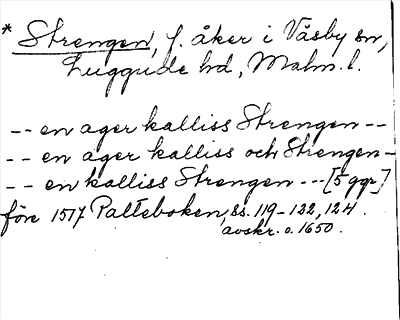 * Strengen, f. åker i Väsby sn,
Luggude hd, Malm. l.
-- en ager kalliss Strengen --
-- en ager kalliss och Strengen -
-- en kalliss Strengen --- [5 ggr]
före 1517 Palteboken, ss. 119-122, 124.
avskr. o. 1650.